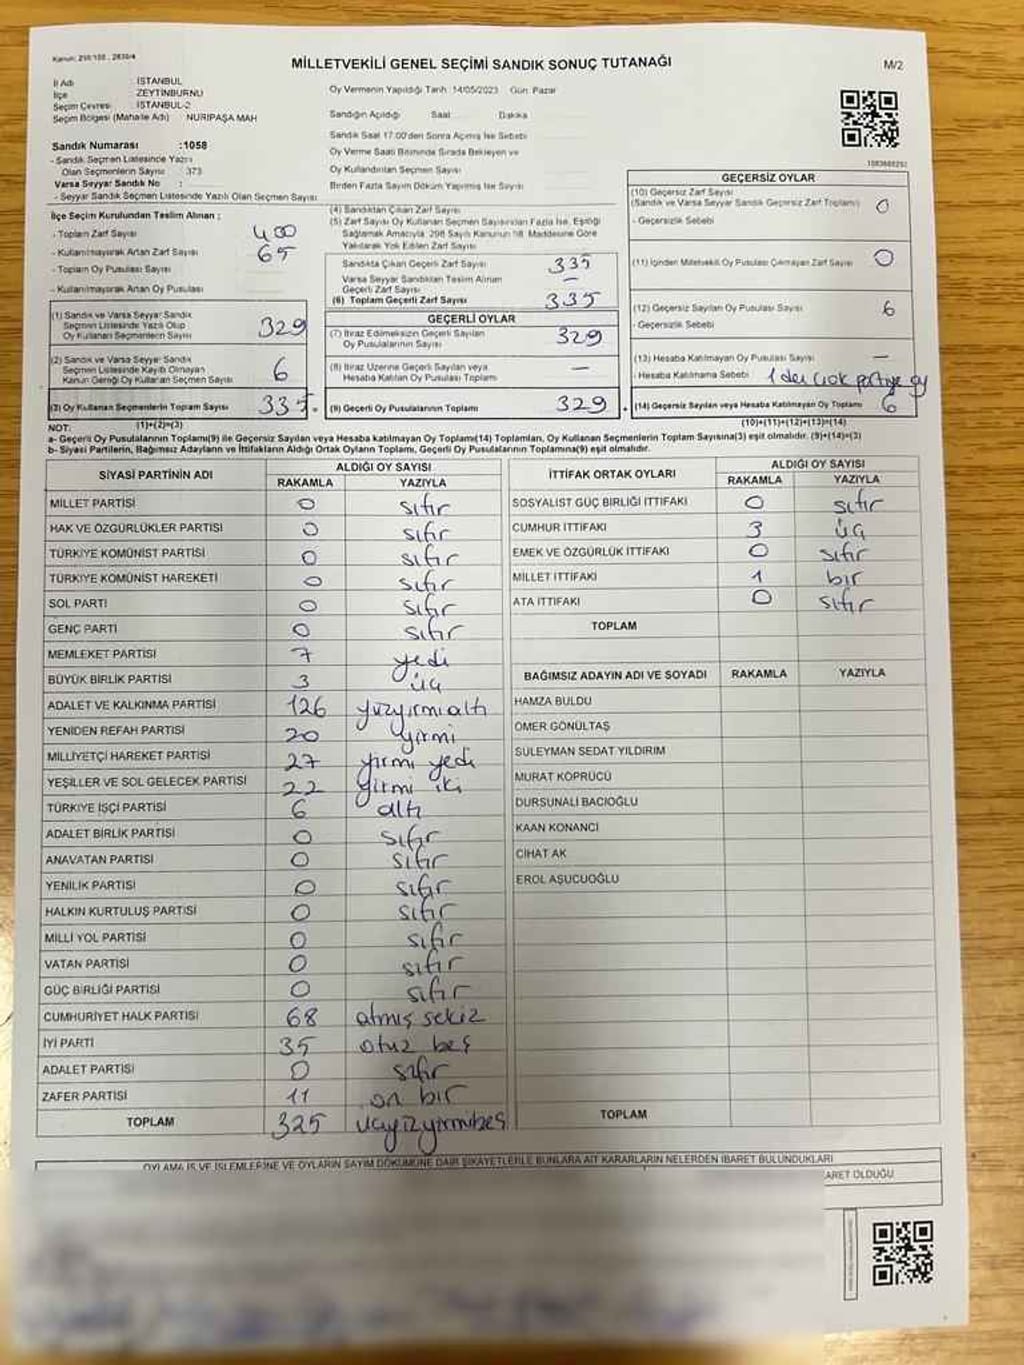 Kanun: 298/105 , 2839/4
MİLLETVEKİLİ GENEL SEÇİMİ SANDIK SONUÇ TUTANAĞI
M/2
İl Adı : İSTANBUL
İlçe : ZEYTİNBURNU
Seçim Çevresi : İSTANBUL-2
Seçim Bölgesi (Mahalle Adı) NURİPAŞA MAH
Sandık Numarası :1058
- Sandık Seçmen Listesinde Yazılı
Olan Seçmenlerin Sayısı : 373
Varsa Seyyar Sandık No :
- Seyyar Sandık Seçmen Listesinde Yazılı Olan Seçmen Sayısı
Oy Vermenin Yapıldığı Tarih :14/05/2023 Gün: Pazar
Sandığın Açıldığı Saat Dakika
Sandık Saat 17:00'den Sonra Açılmış İse Sebebi
Oy Verme Saati Bitiminde Sırada Bekleyen ve
Oy Kullandırılan Seçmen Sayısı
Birden Fazla Sayım Döküm Yapılmış İse Sayısı
İlçe Seçim Kurulundan Teslim Alınan ;
- Toplam Zarf Sayısı 400
- Kullanılmayarak Artan Zarf Sayısı 65
- Toplam Oy Pusulası Sayısı
- Kullanılmayarak Artan Oy Pusulası
(1) Sandık ve Varsa Seyyar Sandık
Seçmen Listesinde Yazılı Olup
Oy Kullanan Seçmenlerin Sayısı 329
(2) Sandık ve Varsa Seyyar Sandık
Seçmen Listesinde Kayıtlı Olmayan
Kanun Gereği Oy Kullanan Seçmen Sayısı 6
(3) Oy Kullanan Seçmenlerin Toplam Sayısı 335
(4) Sandıktan Çıkan Zarf Sayısı
(5) Zarf Sayısı Oy Kullanan Seçmen Sayısından Fazla İse, Eşitliği
Sağlamak Amacıyla, 298 Sayılı Kanunun 98. Maddesine Göre
Yakılarak Yok Edilen Zarf Sayısı
Sandıkta Çıkan Geçerli Zarf Sayısı 335
Varsa Seyyar Sandıktan Teslim Alınan
Geçerli Zarf Sayısı —
(6) Toplam Geçerli Zarf Sayısı 335
GEÇERLİ OYLAR
(7) İtiraz Edilmeksizin Geçerli Sayılan
Oy Pusulalarının Sayısı 329
(8) İtiraz Üzerine Geçerli Sayılan veya
Hesaba Katılan Oy Pusulası Toplamı —
(9) Geçerli Oy Pusulalarının Toplamı 329
GEÇERSİZ OYLAR
(10) Geçersiz Zarf Sayısı
(Sandık ve Varsa Seyyar Sandık Geçersiz Zarf Toplamı) 0
- Geçersizlik Sebebi
(11) İçinden Milletvekili Oy Pusulası Çıkmayan Zarf Sayısı 0
(12) Geçersiz Sayılan Oy Pusulası Sayısı 6
- Geçersizlik Sebebi
(13) Hesaba Katılmayan Oy Pusulası Sayısı —
- Hesaba Katılmama Sebebi 1 den çok partiye oy
(14) Geçersiz Sayılan veya Hesaba Katılmayan Oy Toplamı 6
NOT: (1)+(2)=(3)
(10)+(11)+(12)+(13)=(14)
a- Geçerli Oy Pusulalarının Toplamı(9) ile Geçersiz Sayılan veya Hesaba katılmayan Oy Toplamı(14) Toplamları, Oy Kullanan Seçmenlerin Toplam Sayısına(3) eşit olmalıdır. (9)+(14)=(3)
b- Siyasi Partilerin, Bağımsız Adayların ve İttifakların Aldığı Ortak Oyların Toplamı, Geçerli Oy Pusulalarının Toplamına(9) eşit olmalıdır.
SİYASİ PARTİNİN ADI ALDIĞI OY SAYISI
RAKAMLA YAZIYLA
MİLLET PARTİSİ 0 sıfır
HAK VE ÖZGÜRLÜKLER PARTİSİ 0 sıfır
TÜRKİYE KOMÜNİST PARTİSİ 0 sıfır
TÜRKİYE KOMÜNİST HAREKETİ 0 sıfır
SOL PARTİ 0 sıfır
GENÇ PARTİ 0 sıfır
MEMLEKET PARTİSİ 7 yedi
BÜYÜK BİRLİK PARTİSİ 3 üç
ADALET VE KALKINMA PARTİSİ 126 yüzyirmialtı
YENİDEN REFAH PARTİSİ 20 yirmi
MİLLİYETÇİ HAREKET PARTİSİ 27 yirmi yedi
YEŞİLLER VE SOL GELECEK PARTİSİ 22 yirmi iki
TÜRKİYE İŞÇİ PARTİSİ 6 altı
ADALET BİRLİK PARTİSİ 0 sıfır
ANAVATAN PARTİSİ 0 sıfır
YENİLİK PARTİSİ 0 sıfır
HALKIN KURTULUŞ PARTİSİ 0 sıfır
MİLLİ YOL PARTİSİ 0 sıfır
VATAN PARTİSİ 0 sıfır
GÜÇ BİRLİĞİ PARTİSİ 0 sıfır
CUMHURİYET HALK PARTİSİ 68 atmış sekiz
İYİ PARTİ 35 otuz beş
ADALET PARTİSİ 0 sıfır
ZAFER PARTİSİ 11 on bir
TOPLAM 325 üçyüzyirmibeş
İTTİFAK ORTAK OYLARI ALDIĞI OY SAYISI
RAKAMLA YAZIYLA
SOSYALİST GÜÇ BİRLİĞİ İTTİFAKI 0 sıfır
CUMHUR İTTİFAKI 3 üç
EMEK VE ÖZGÜRLÜK İTTİFAKI 0 sıfır
MİLLET İTTİFAKI 1 bir
ATA İTTİFAKI 0 sıfır
TOPLAM
BAĞIMSIZ ADAYIN ADI VE SOYADI RAKAMLA YAZIYLA
HAMZA BULDU
ÖMER GÖNÜLTAŞ
SÜLEYMAN SEDAT YILDIRIM
MURAT KÖPRÜCÜ
DURSUNALİ BACIOĞLU
KAAN KONANCİ
CİHAT AK
EROL AŞUCUOĞLU
TOPLAM
OYLAMA İŞ VE İŞLEMLERİNE VE OYLARIN SAYIM DÖKÜMÜNE DAİR ŞİKAYETLERLE BUNLARA AİT KARARLARIN NELERDEN İBARET BULUNDUKLARI
ARET OLDUĞU